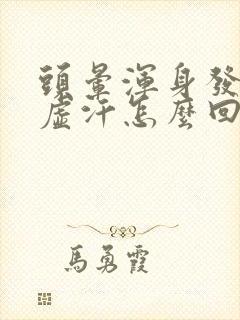 頭暈渾身發
虛汗怎麼回
馬勇霞